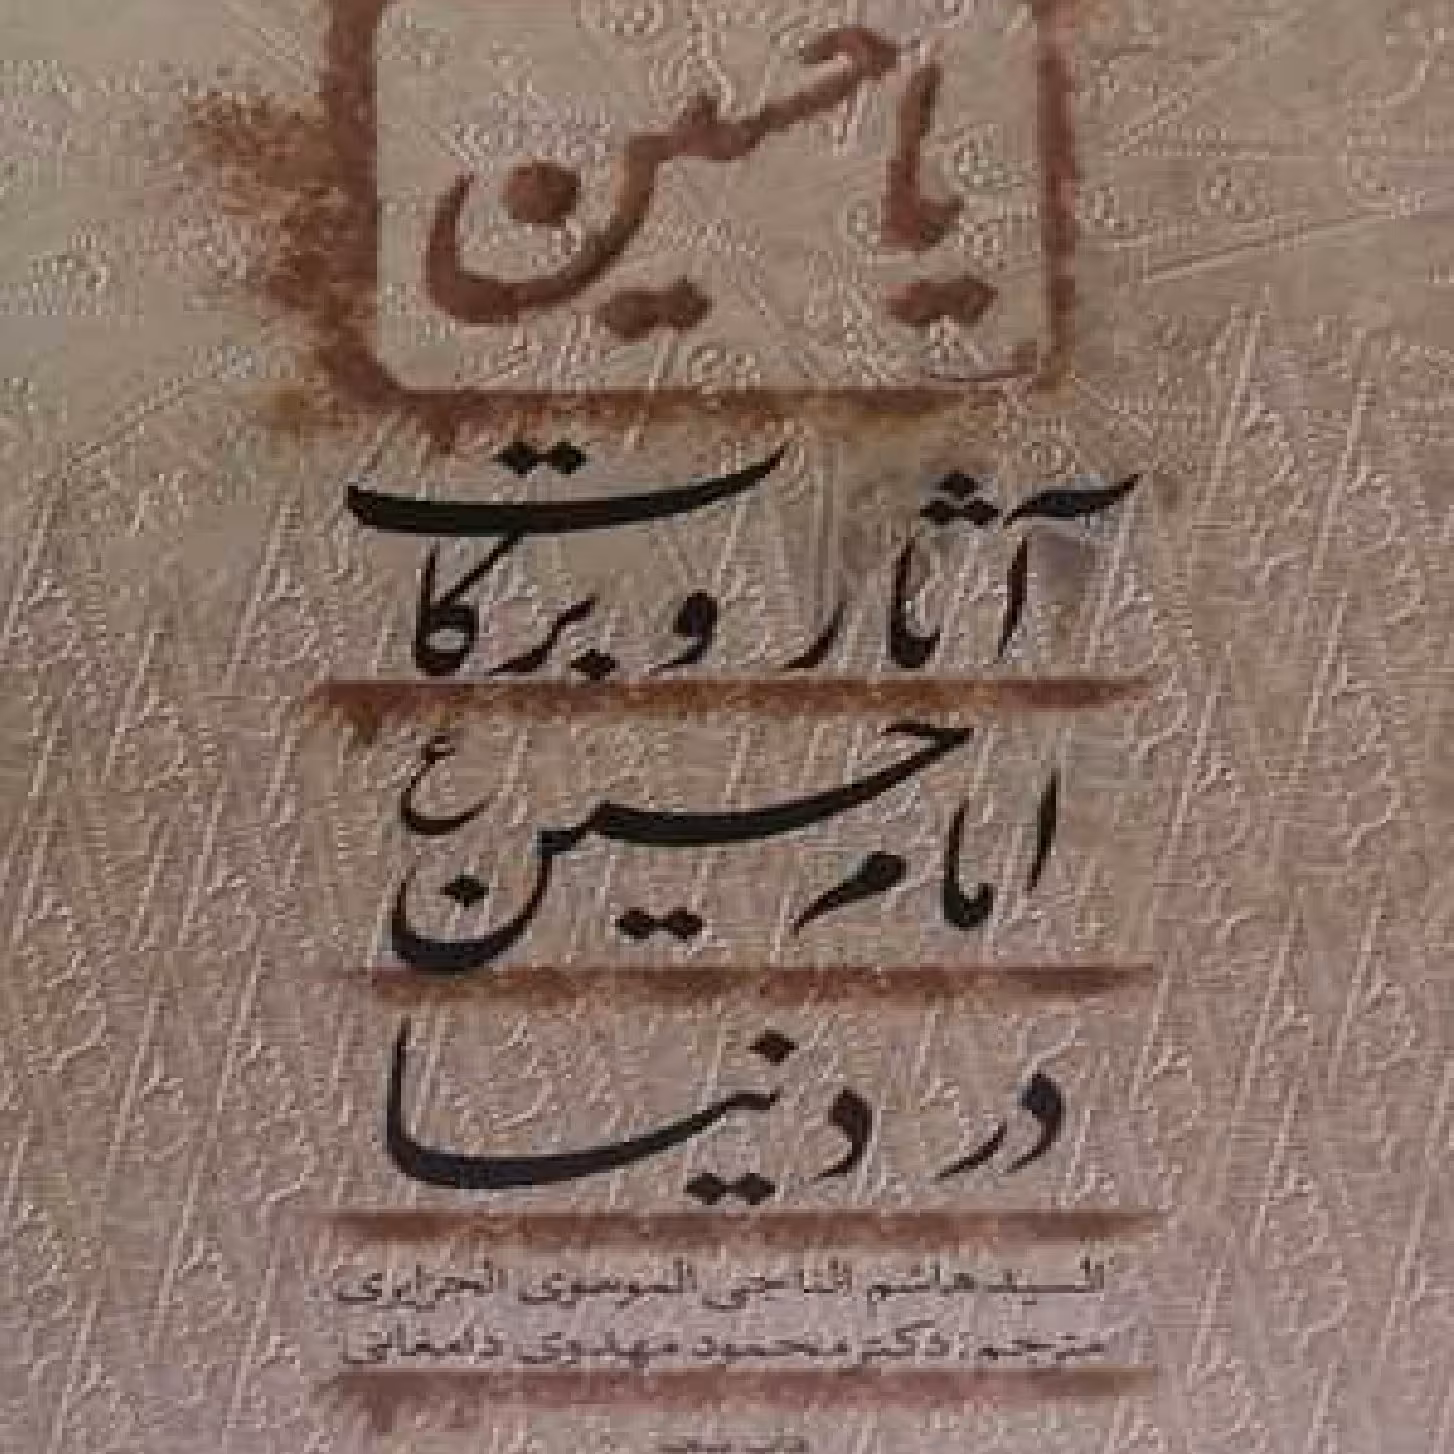 یا حسین
آثار و برکات
امام حسین ع
در دنیا
السید هاشم الناجی الموسوی الجزایری
مترجم: دکتر محمود مهدوی دامغانی